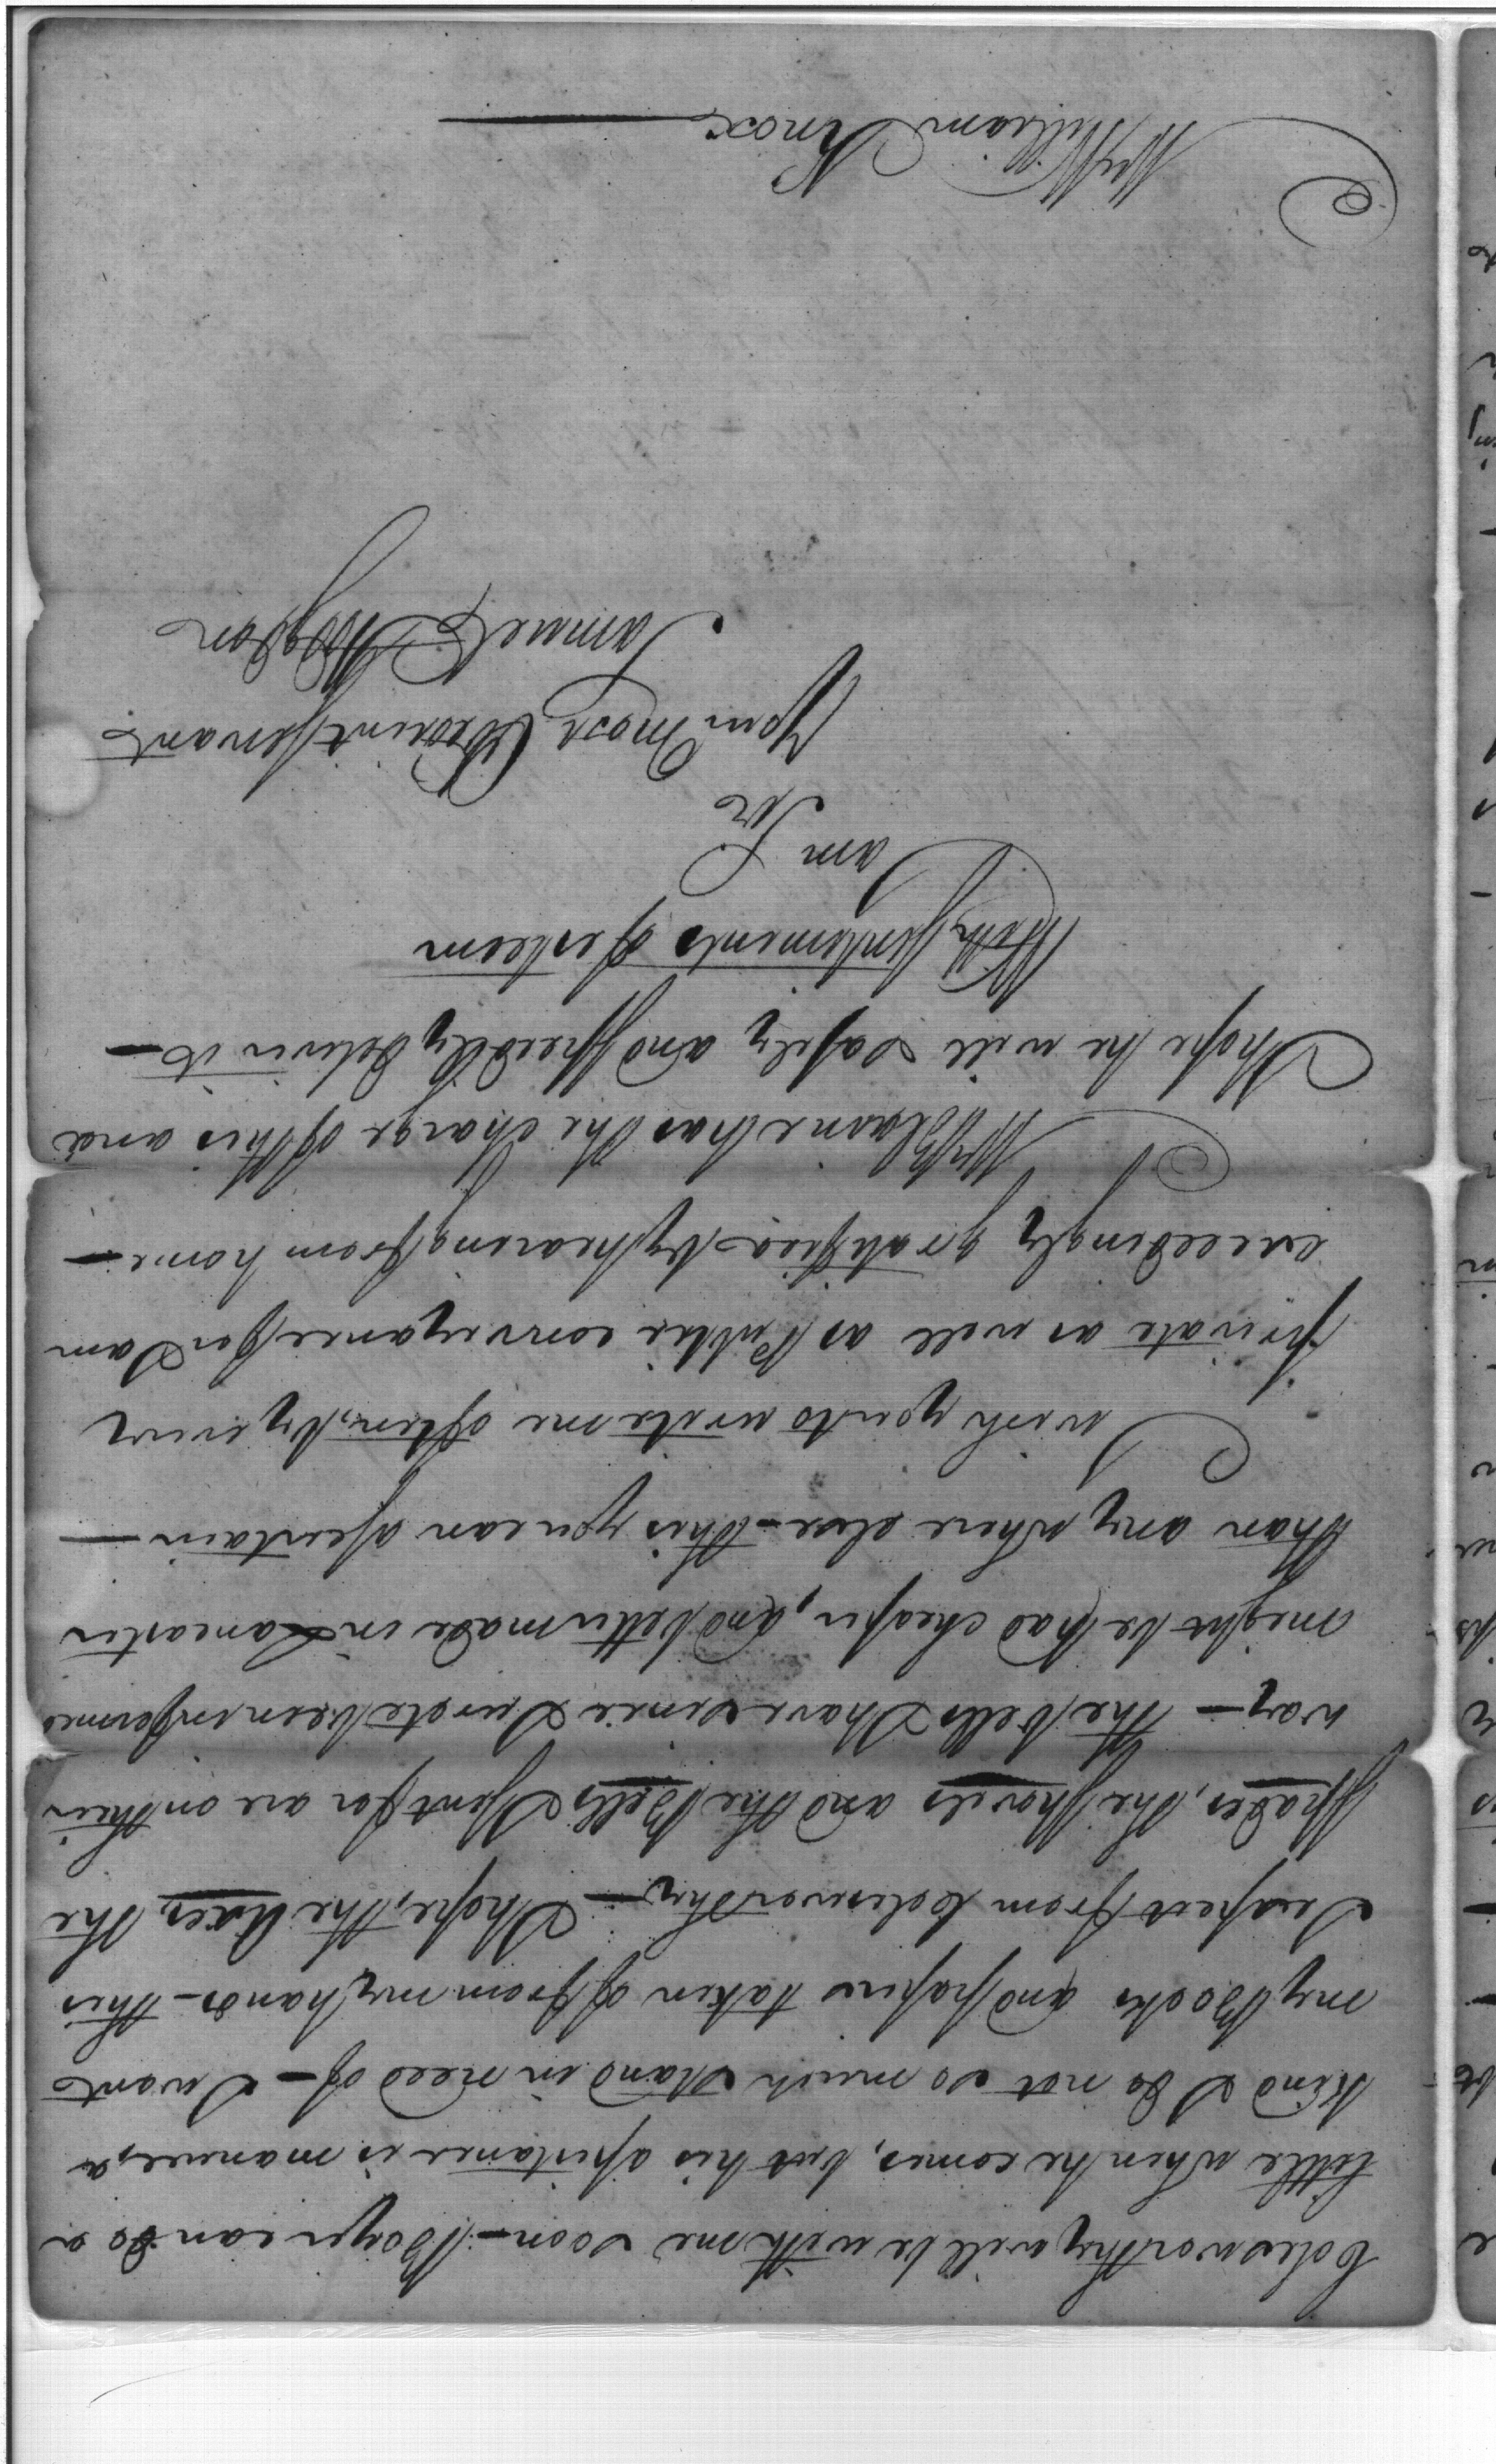 Colesworthy will be with me soon - Boyer can do a
little when he comes, but his assistance is manuel, a
kind I do not so much stand in need of - I want
my Books and papers taken off from my hands - this
I expect from Colesworthy - I hope, the Axes, the
Spades, the Shovels and the Bells I sent for are on their
way - The bells I have since I wrote been informed
might be had cheaper, and better made in Lancaster
than any where else - this you can ascertain -
I wish you to write me often, by every
private as well as Public conveyance for I am
exceedingly gratified by hearing from home -
Mr Blaine has the charge of this and
I hope he will safely and speedily deliver it -
With sentiments of esteem
I am Sir
Your most Obedient Servant
Samuel Hodgdon
Mr William Knox